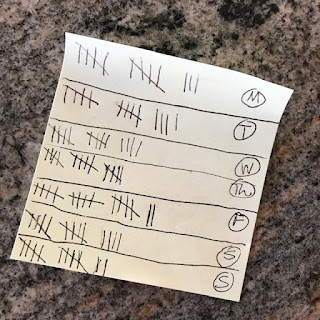 M
T
W
Th
F
S
S